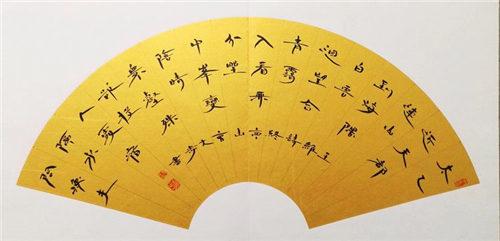 太乙
近天都
連山
到海隅
白雲
迴望合
青靄
入看無
分壄
中峯變
陰晴
衆壑殊
欲投
人處宿
隔水
問樵夫
王維詩終南山